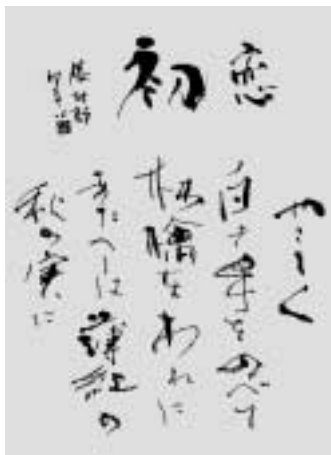 初恋
藤村詩
やさしく
白き手をのべて
林檎をわれに
あたへしは薄紅の
秋の実に